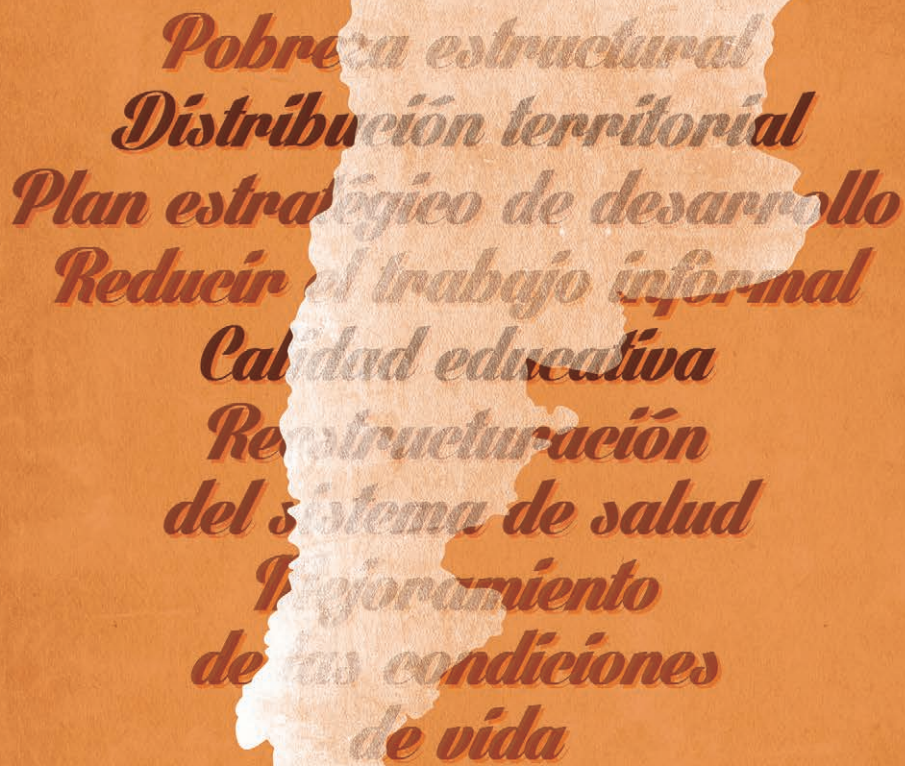 Pobreza estructural
Distribución territorial
Plan estratégico de desarrollo
Reducir el trabajo informal
Calidad educativa
Reestructuración
del sistema de salud
Mejoramiento
de las condiciones
de vida